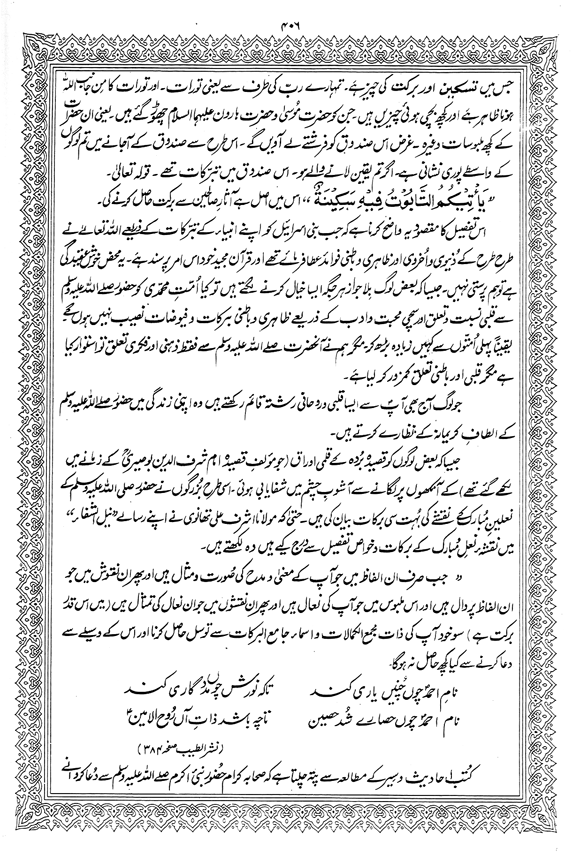 ۴۰۶
جس میں تسکین اور برکت کی چیز ہے۔ تمہارے رب کی طرف سے یعنی تورات۔ اور تورات کا من جانب اللہ
ہونا ظاہر ہے اور کچھ بچی ہوئی چیزیں ہیں۔ جن کو حضرت موسیٰ و حضرت ہارون علیہما السلام چھوڑ گئے ہیں۔ یعنی ان حضرات
کے کچھ ملبوسات وغیرہ۔ غرض اس صندوق کو فرشتے لے آویں گے۔ اس طرح سے صندوق کے آجانے میں تم لوگوں
کے واسطے پوری نشانی ہے۔ اگر تم یقین لانے والے ہو۔ اس صندوق میں تبرکات تھے۔ قولہ تعالیٰ۔
"یَأْتِیَکُمُ التَّابُوْتُ فِیْهِ سَکِیْنَةٌ" اس میں اصل ہے آثار صالحین سے برکت حاصل کرنے کی۔
اس تفصیل کا مقصد یہ واضح کرنا ہے کہ جب بنی اسرائیل کو اپنے انبیاء کے تبرکات کے ذریعے اللہ تعالیٰ نے
طرح طرح کے دنیوی و اخروی اور ظاہری و باطنی فوائد عطا فرمائے تھے اور قرآن مجید خود اس امر پر سند ہے۔ یہ محض خوش عقیدگی
ہے توہم پرستی نہیں۔ جیسا کہ بعض لوگ بلا جواز ہر جگہ ایسا خیال کرنے لگتے ہیں تو کیا امت محمدی کو حضور صلے اللہ علیہ وسلم
سے قلبی نسبت و تعلق اور سچی محبت و ادب کے ذریعے ظاہری و باطنی برکات و فیوضات نصیب نہیں ہوں گے
یقیناً پہلی امتوں سے کہیں زیادہ بڑھ کر۔ مگر ہم نے آنحضرت صلے اللہ علیہ وسلم سے فقط ذہنی اور فکری تعلق تو استوار کیا
ہے مگر قلبی اور باطنی تعلق کمزور کر لیا ہے۔
جو لوگ آج بھی آپؐ سے ایسا قلبی و روحانی رشتہ قائم رکھتے ہیں وہ اپنی زندگی میں حضور صلے اللہ علیہ وسلم
کے الطاف کریمانہ کے نظارے کرتے ہیں۔
جیسا کہ بعض لوگوں کو قصیدہ بردہ کے قلمی اوراق (جو مؤلف قصیدہ امام شرف الدین بوصیریؒ کے زمانے میں
لکھے گئے تھے) کے آنکھوں پر لگانے سے آشوب چشم میں شفایابی ہوئی۔ اسی طرح بزرگوں نے حضور صلی اللہ علیہ وسلم کے
نعلین مبارک کے نقشے کی بہت سی برکات بیان کی ہیں۔ حتیٰ کہ مولانا اشرف علی تھانوی نے اپنے رسالے "نیل الشفاء"
میں نقشہ نعل مبارک کے برکات و خواص تفصیل سے درج کیے ہیں وہ لکھتے ہیں۔
"جب صرف ان الفاظ میں جو آپ کے معنی و مدح کی صورت و مثال ہیں اور پھر ان نقوش میں جو
ان الفاظ پر دال ہیں اور اس ملبوس میں جو آپ کی نعال ہیں اور پھر ان نقشوں میں جو ان نعال کی تمثال ہیں (میں اس قدر
برکت ہے) سو خود آپ کی ذات مجمع الکمالات و اسماء جامع البرکات سے توسل حاصل کرنا اور اس کے وسیلے سے
دعا کرنے سے کیا کچھ حاصل نہ ہوگا۔
نام احمدؐ چوں چنیں یاری کند تاکہ نورش چوں مددگاری کند
نام احمدؐ چوں حصارے شد حصین تاچہ باشد ذات آں روح الامین
(نشر الطیب صفحہ ۳۸۴)
کتب احادیث و سیر کے مطالعہ سے پتہ چلتا ہے کہ صحابہ کرام حضور نبی اکرم صلے اللہ علیہ وسلم سے دعا کروانے